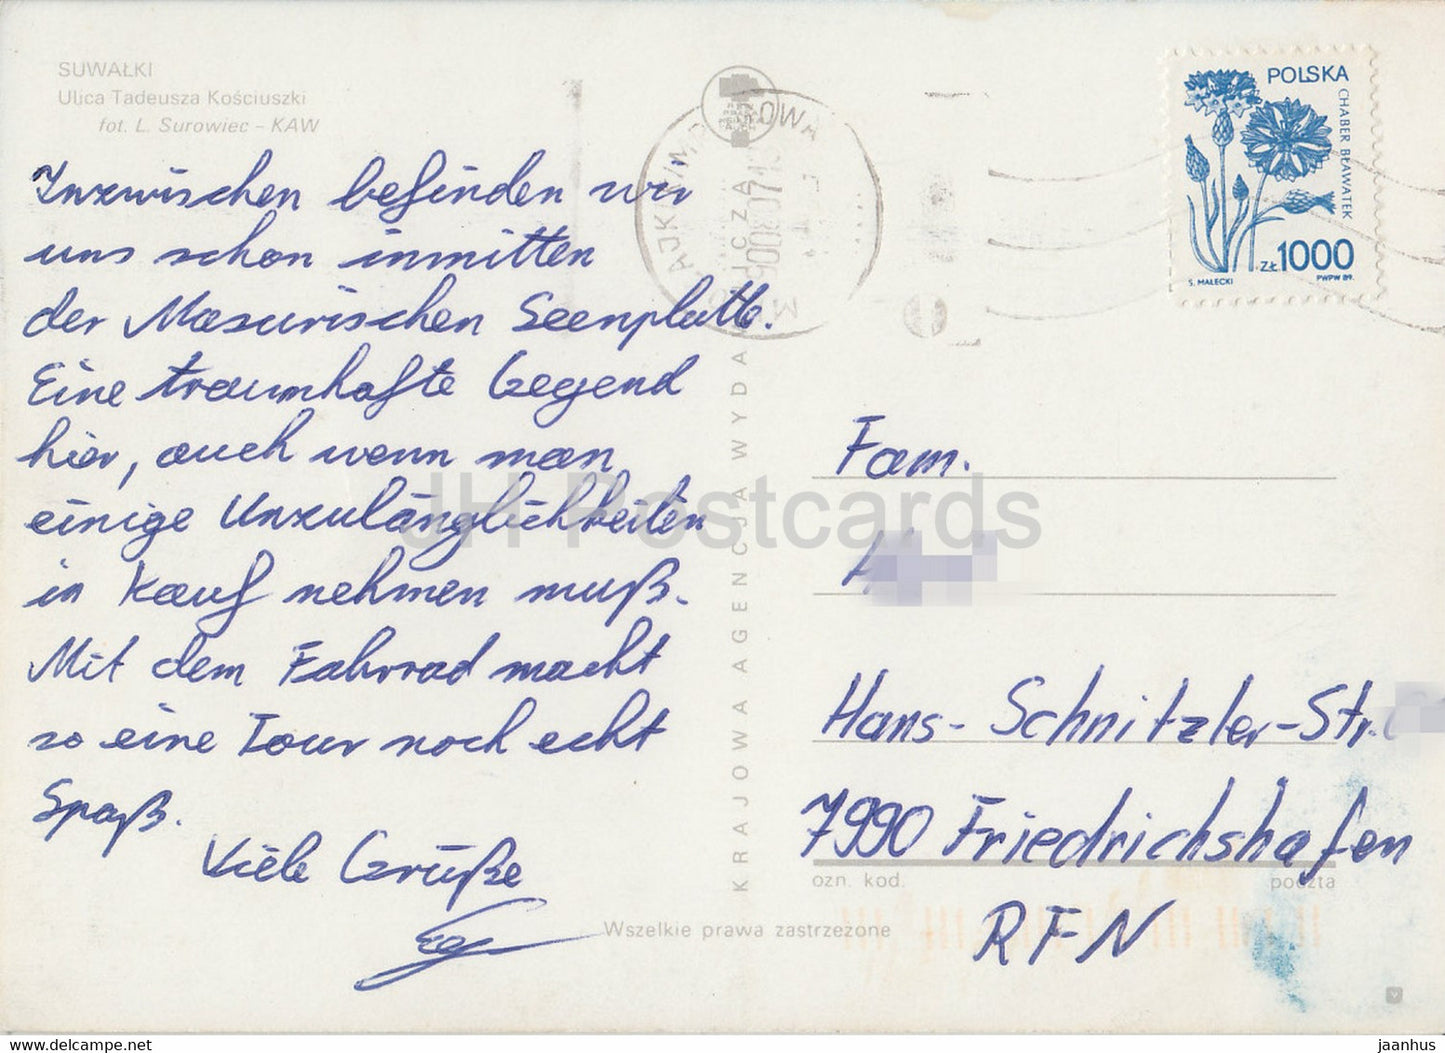 SUWAŁKI
Ulica Tadeusza Kościuszki
fot. L. Surowiec – KAW
Inzwischen befinden wir
uns schon inmitten
der Masurischen Seenplatte.
Eine traumhafte Gegend
hier, auch wenn man
einige Unzulänglichkeiten
in Kauf nehmen muß.
Mit dem Fahrrad macht
so eine Tour noch echt
Spaß.
Viele Grüße
KRAJOWA AGENCJA WYDA
POLSKA
CHABER BŁAWATEK
ZŁ 1000
S. MAŁECKI
PWPW 89.
Fam.
Hans-Schnitzler-Str.
7990 Friedrichshafen
ozn. kod.
poczta
RFN
Wszelkie prawa zastrzeżone
JH Postcards
suwalki-ww.delcampe.net
jaanhus